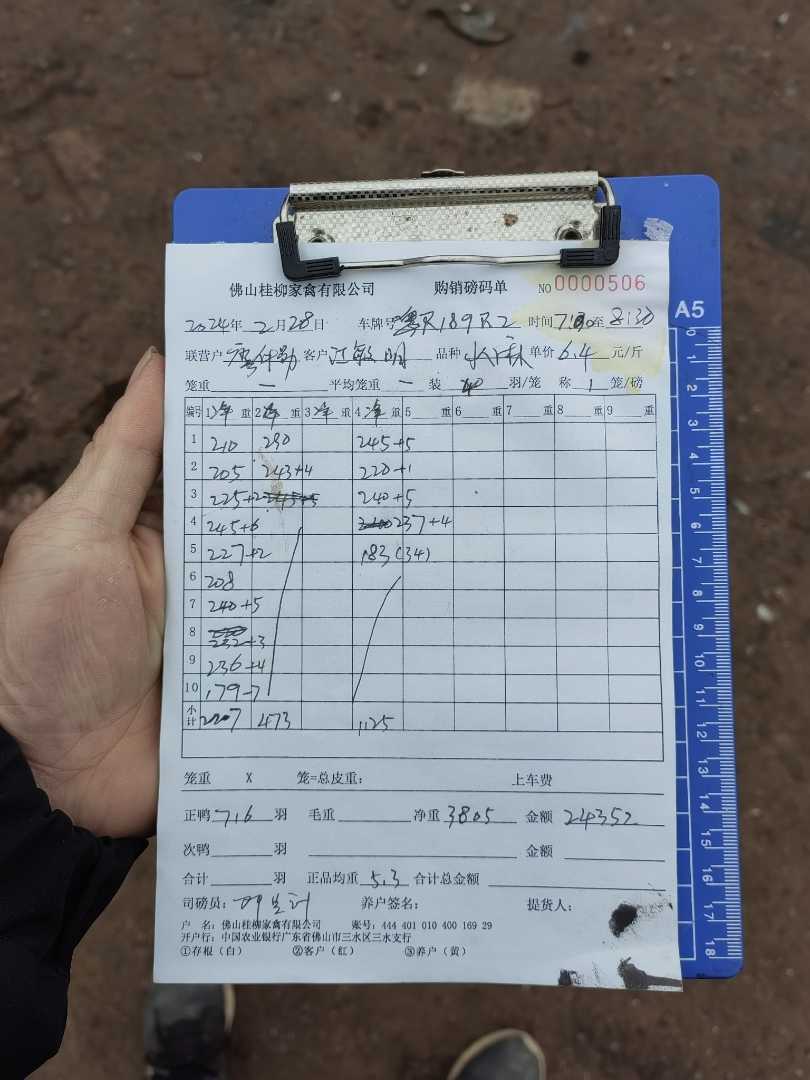 佛山桂柳家禽有限公司 购销磅码单 NO 0000506
2024年 2月 28日 车牌号 粤R189R2 时间 7:00至 8:30
联营户 客户 江敏明 品种 单价 6.4 元/斤
笼重 一 平均笼重 一 装 40 羽/笼 称 1 笼/磅
编号 1 净 重 2 净 重 3 净 重 4 净 重 5 重 6 重 7 重 8 重 9 重
1 210 230 245+5
2 205 243+4 220+1
3 225+2 240+5
4 245+6 237+4
5 227+2 183(34)
6 208
7 240+5
8 232+3
9 236+4
10 179-7
小计 2207 473 1125
笼重 X 笼=总皮重: 上车费
正鸭 716 羽 毛重 净重 3805 金额 24352
次鸭 羽 金额
合计 羽 正品均重 5.3 合计总金额
司磅员: 养户签名: 提货人:
户 名: 佛山桂柳家禽有限公司 账号: 444 401 010 400 169 29
开户行: 中国农业银行广东省佛山市三水区三水支行
①存根(白) ②客户(红) ③养户(黄)
A5
0 1 2 3 4 5 6 7 8 9 10 11 12 13 14 15 16 17 18